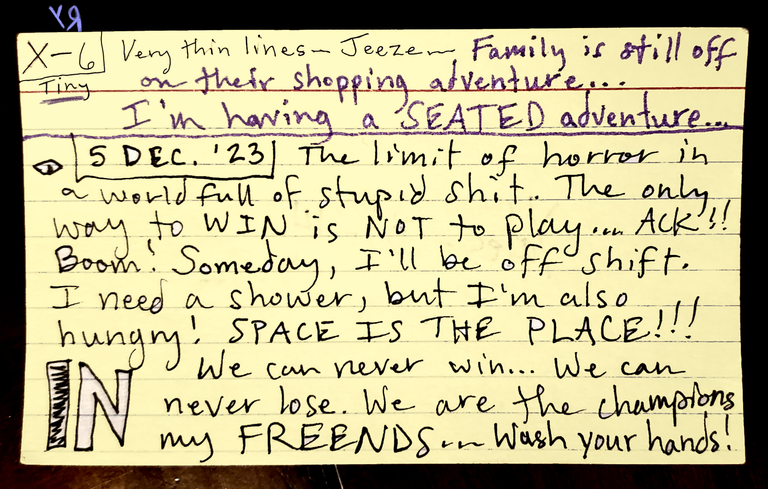 X-6 Very thin lines~ Jeeze~ Family is still off
Tiny on their shopping adventure...
I'm having a SEATED adventure...
5 DEC. '23 The limit of horror in
a world full of stupid shit. The only
way to WIN is NOT to play... ACK!!!
Boom! Someday, I'll be off shift.
I need a shower, but I'm also
hungry! SPACE IS THE PLACE!!!
IN We can never win... We can
never lose. We are the champions
my FREENDS... Wash your hands!